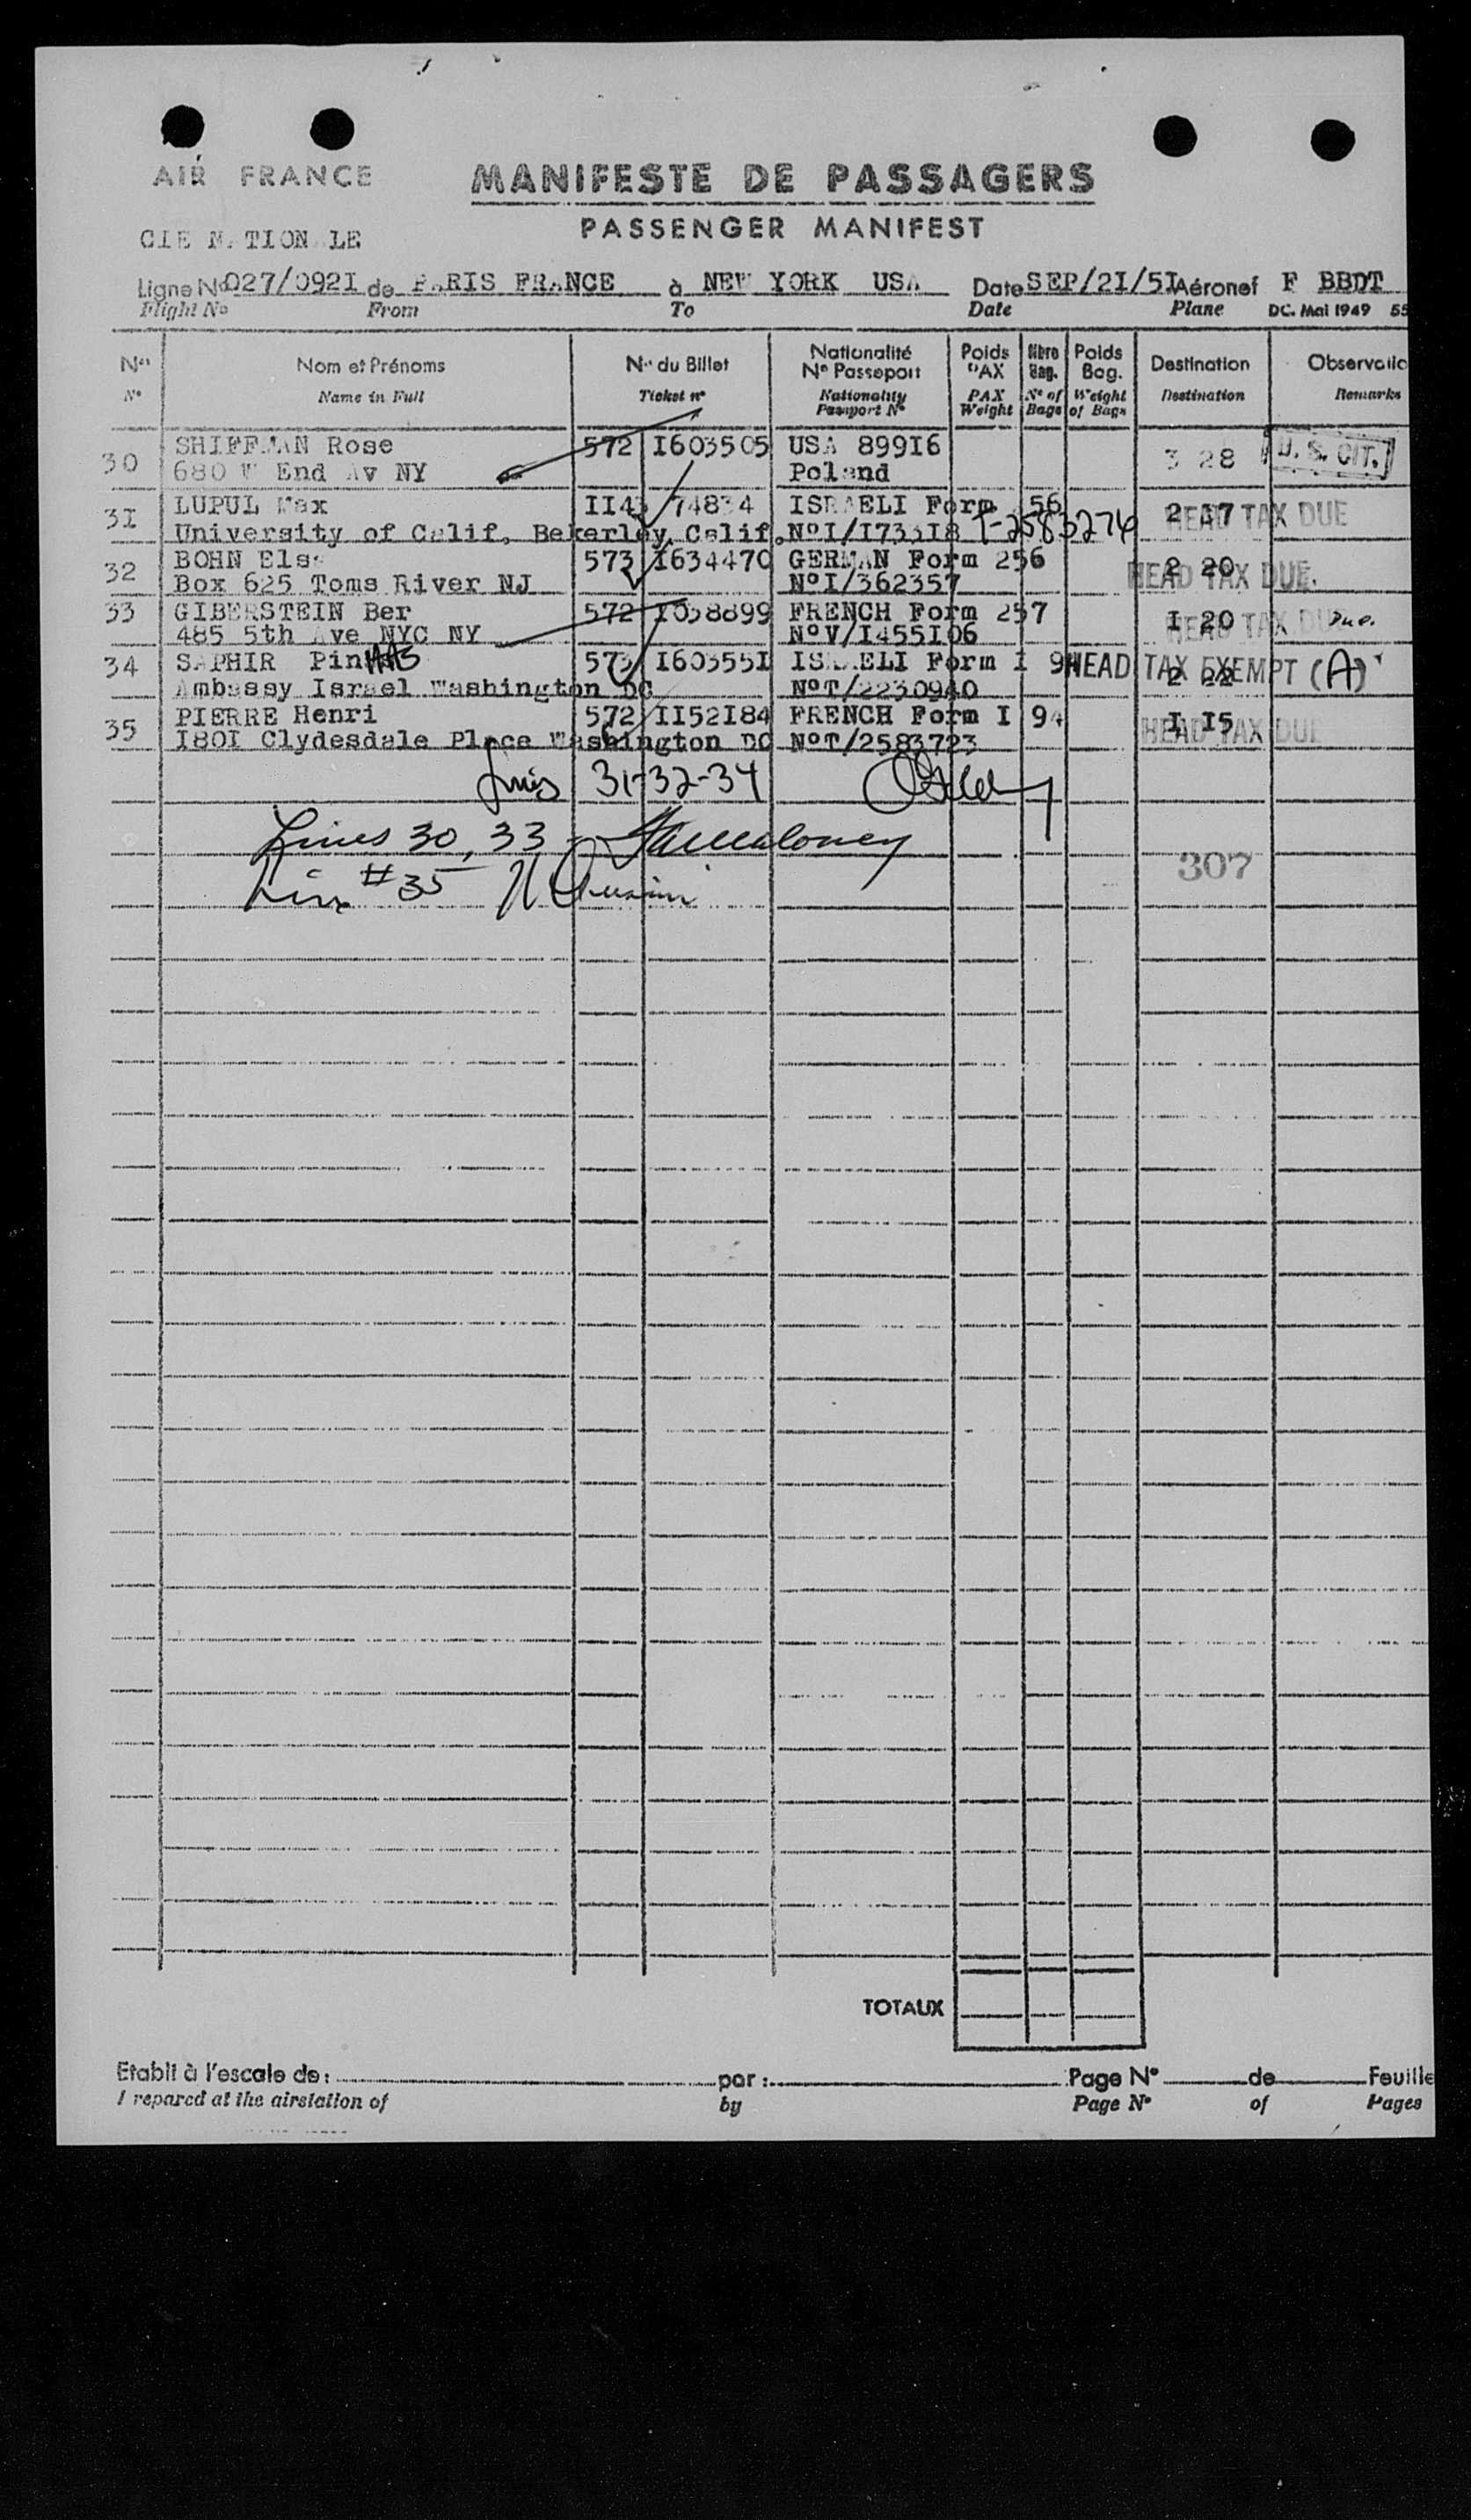 AIR FRANCE
MANIFESTE DE PASSAGERS
PASSENGER MANIFEST
CIE N TION LE
Ligne No 027/092I de PARIS FRANCE à NEW YORK USA Date SEP/2I/5I Aéronef F BBDT
Flight No From To Date Plane DC. Mai 1949 55
Nos Nom et Prénoms No du Billet Nationalité No Passeport Poids PAX Nbre Bag. Poids Bag. Destination Observatio
No Name in Full Ticket no Nationality Passport No PAX Weight No of Bags Weight of Bags Destination Remarks
30 SHIFFMAN Rose 572 I603505 USA 899I6 3 28 U. S. CIT.
680 W End Av NY Poland
3I LUPUL Max II43 74834 ISRAELI Form 56 2 I7 HEAD TAX DUE
University of Calif, Bekerley, Calif. NoI/I733I8 T-2583276
32 BOHN Els 573 I634470 GERMAN Form 256 2 20 HEAD TAX DUE.
Box 625 Toms River NJ NoI/362357
33 GIBERSTEIN Ber 572 I058899 FRENCH Form 257 I 20 HEAD TAX DUE Due.
485 5th Ave NYC NY NoV/I455I06
34 SAPHIR Pinhas 573 I60355I ISRAELI Form I 9 2 22 HEAD TAX EXEMPT (A)
Ambassy Israel Washington DC NoT/2230940
35 PIERRE Henri 572 II52I84 FRENCH Form I 94 I I5 HEAD TAX DUE
I80I Clydesdale Place Washington DC NoT/2583723
Lines 31-32-34
Lines 30, 33 - Maloney
Line #35
307
TOTAUX
Etabli à l'escale de: par: Page No de Feuille
Prepared at the airstation of by Page No of Pages